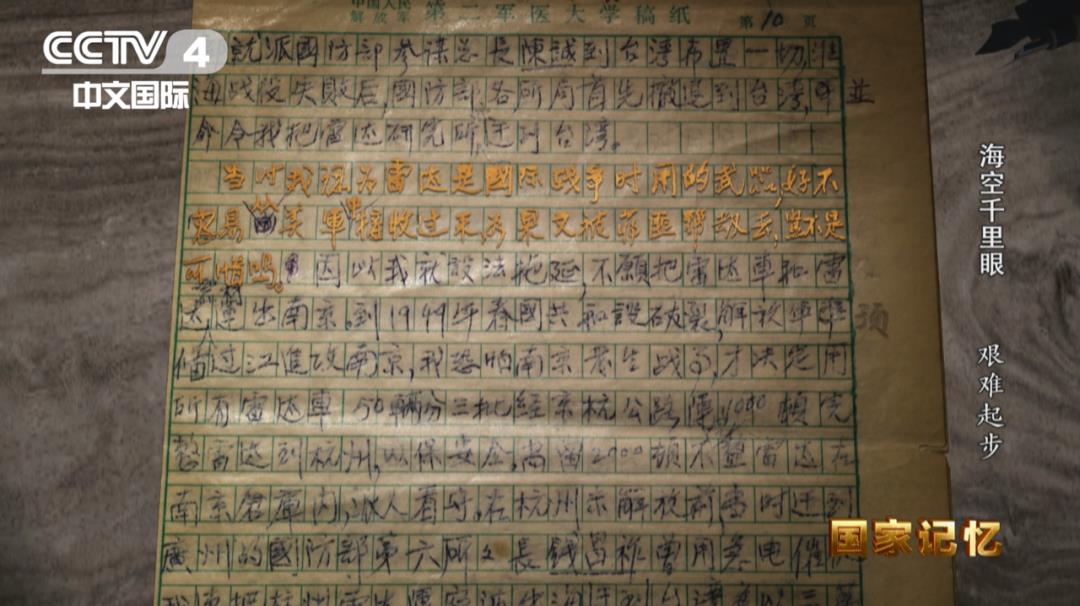 CCTV 4
中文国际
中国人民
解放军 第二军医大学稿纸 第10页
就派國防部参谋总長陳誠到台湾布置一切,淮
海战役失敗后,國防部各所局首先撤退到台湾,並
命令我把雷达研究所迁到台湾。
当时我認为雷达是國际战争时用的武器,好不
容易从美軍中接收过来,如果又被蒋匪帮劫去,豈不是
可惜吗。因此我就設法拖延,不願把雷达車和雷
达運出南京。到1949年春國共和談破裂,解放軍準
備过江進攻南京,我恐怕南京发生战事,才决定用
所有雷达車50輛分三批經京杭公路運1000頓完
整雷达到杭州,以保安全,尚留2000頓不整雷达在
南京倉庫内,派人看守,在杭州未解放前,当时迁到
廣州的國防部第六所所長錢昌祚曾用急电催
海空千里眼
艰难起步
国家记忆